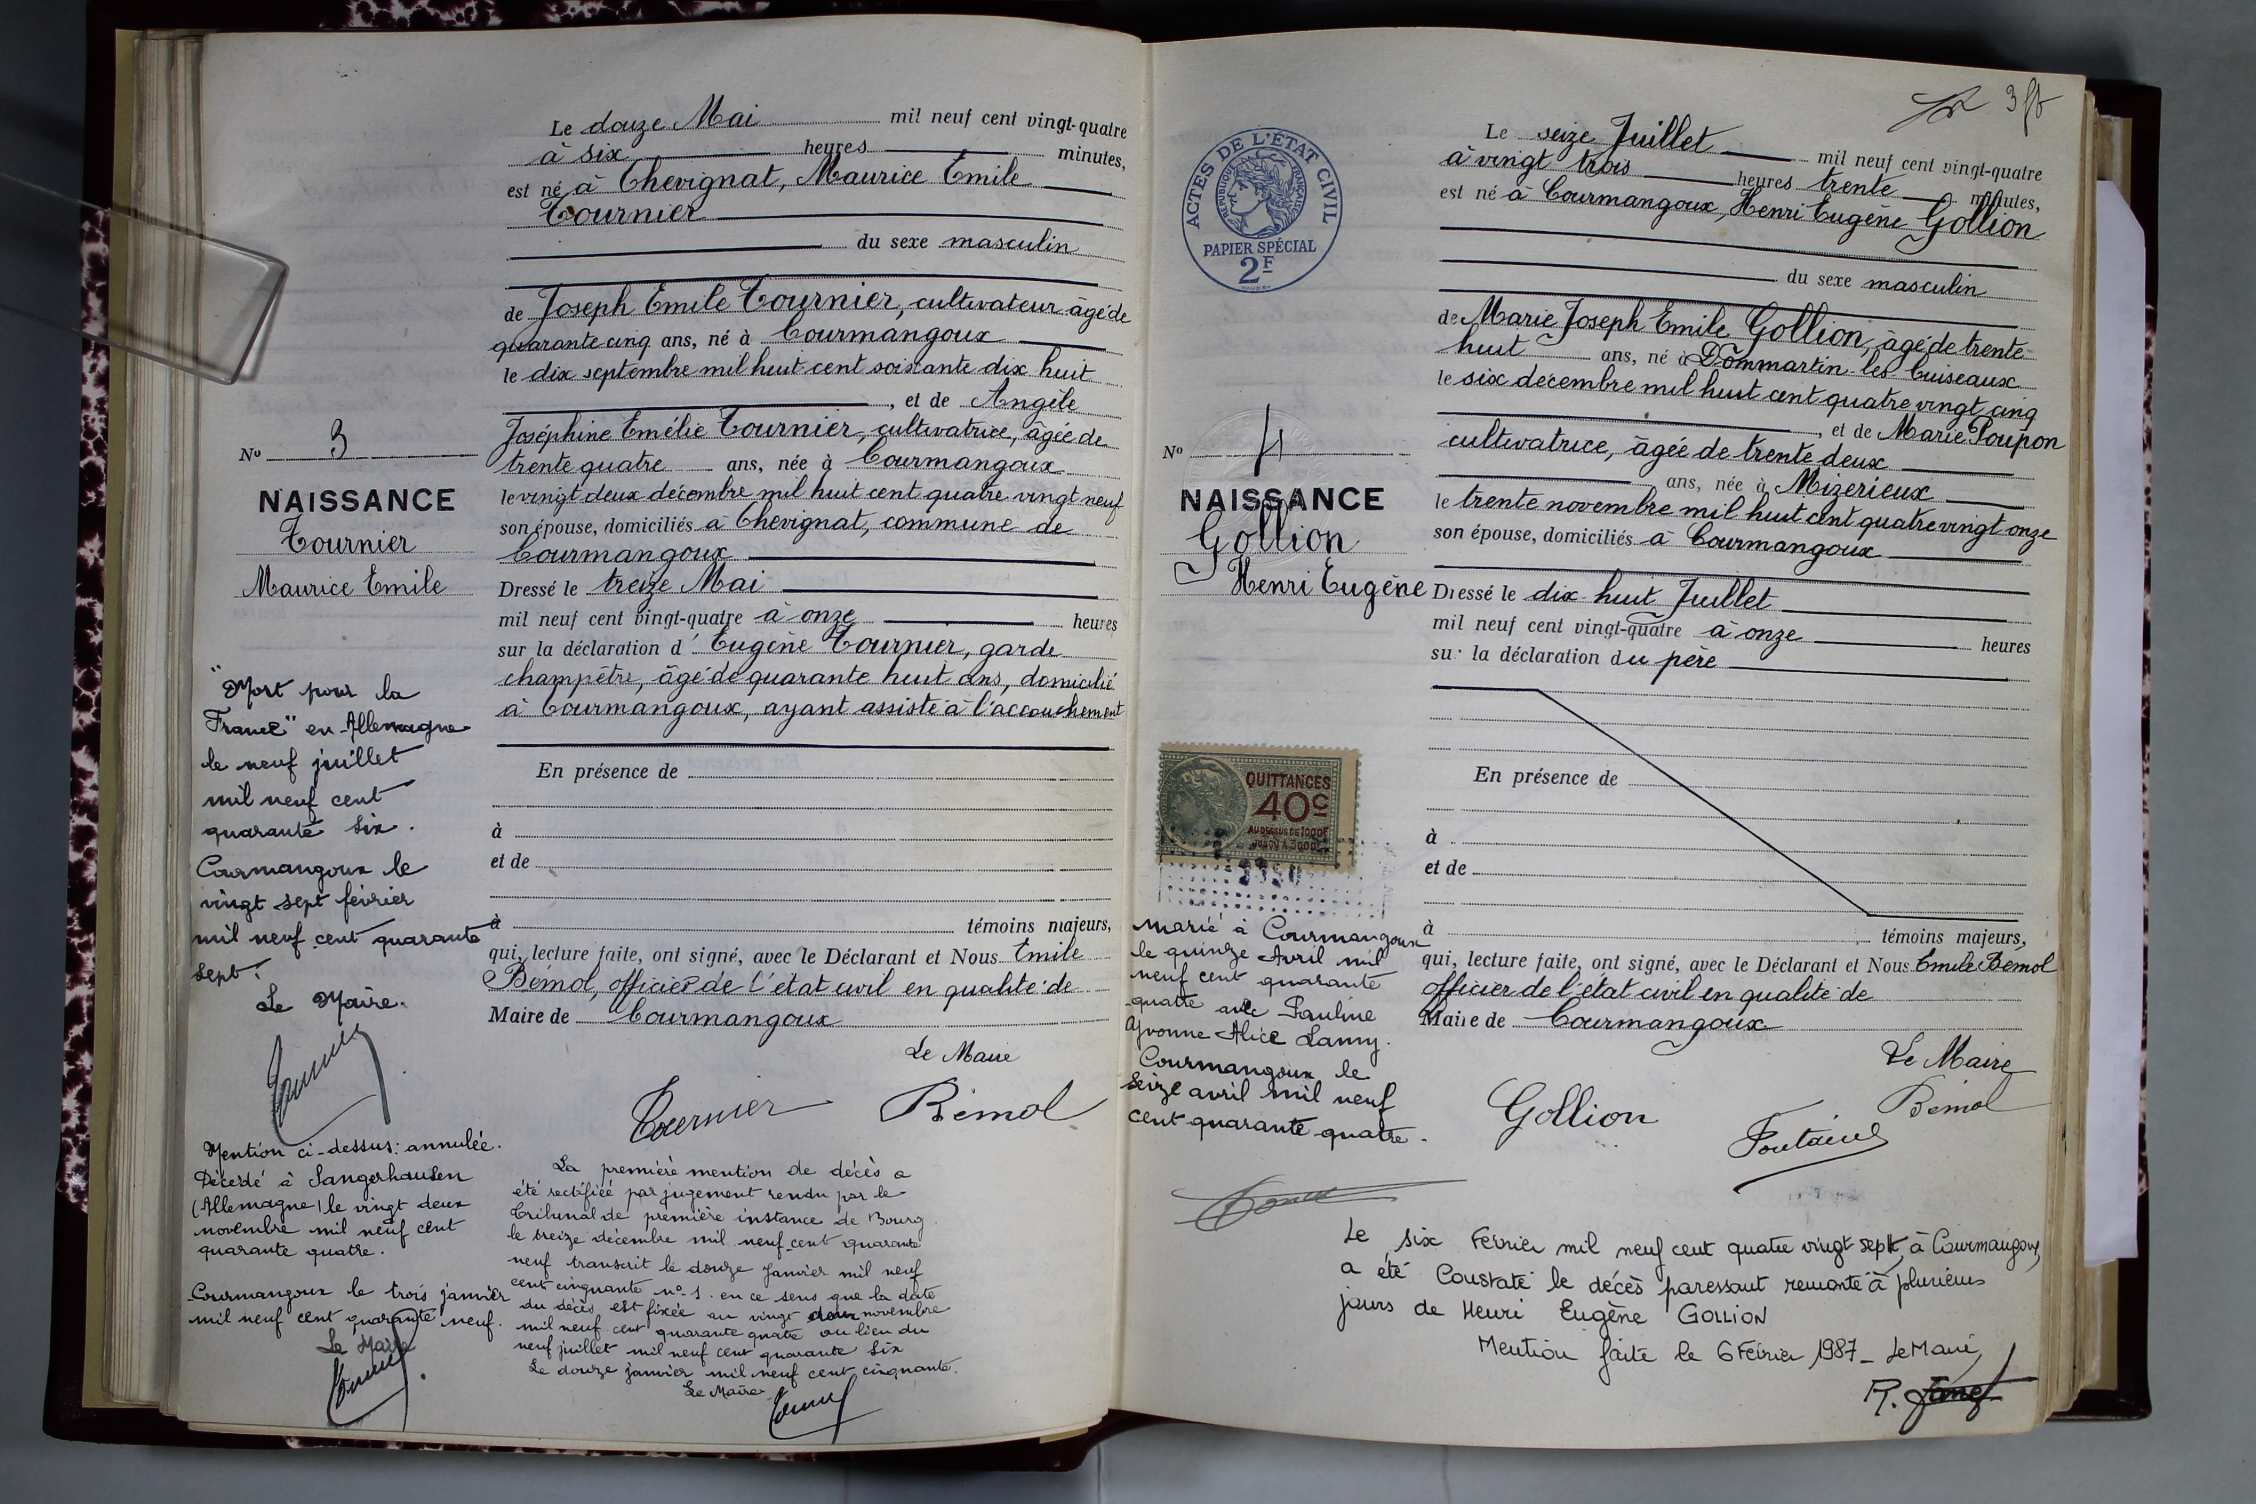 Le douze Mai mil neuf cent vingt-quatre
à six heures minutes,
est né à Chevignat, Maurice Emile
Tournier
du sexe masculin
de Joseph Emile Tournier, cultivateur âgé de
quarante cinq ans, né à Courmangoux
le dix septembre mil huit cent soixante dix huit
, et de Angèle
Joséphine Emélie Tournier, cultivatrice, âgée de
trente quatre ans, née à Courmangoux
le vingt deux décembre mil huit cent quatre vingt neuf
son épouse, domiciliés à Chevignat, commune de
Courmangoux
Dressé le treize Mai
mil neuf cent vingt-quatre à onze heures
sur la déclaration d' Eugène Tournier, garde
champêtre, âgé de quarante huit ans, domicilié
à Courmangoux, ayant assisté à l'accouchement
En présence de
à
et de
à témoins majeurs,
qui, lecture faite, ont signé, avec le Déclarant et Nous Emile
Bémol, officier de l'état civil en qualité de
Maire de Courmangoux
Le Maire
Tournier Bémol
No 3
NAISSANCE
Tournier
Maurice Emile
"Mort pour la
France" en Allemagne
le neuf juillet
mil neuf cent
quarante six.
Courmangoux le
vingt sept février
mil neuf cent quarante
sept.
Le Maire.
Mention ci-dessus: annulée.
Décédé à Sangerhausen
(Allemagne) le vingt deux
novembre mil neuf cent
quarante quatre.
Courmangoux le trois janvier
mil neuf cent quarante neuf.
Le Maire
La première mention de décès a
été rectifiée par jugement rendu par le
Tribunal de première instance de Bourg
le treize décembre mil neuf cent quarante
neuf transcrit le douze janvier mil neuf
cent cinquante no 1. en ce sens que la date
du décès est fixée au vingt deux novembre
mil neuf cent quarante quatre au lieu du
neuf juillet mil neuf cent quarante six
Le douze janvier mil neuf cent cinquante.
Le Maire
ACTES DE L'ÉTAT CIVIL
RÉPUBLIQUE FRANÇAISE
PAPIER SPÉCIAL
2F
Le seize Juillet mil neuf cent vingt-quatre
à vingt trois heures trente minutes,
est né à Courmangoux, Henri Eugène Gollion
du sexe masculin
de Marie Joseph Emile Gollion, âgé de trente
huit ans, né à Dommartin-les-Cuiseaux
le six décembre mil huit cent quatre vingt cinq
, et de Marie Poupon
cultivatrice, âgée de trente deux
ans, née à Mizerieux
le trente novembre mil huit cent quatre vingt onze
son épouse, domiciliés à Courmangoux
Dressé le dix-huit Juillet
mil neuf cent vingt-quatre à onze heures
sur la déclaration du père
En présence de
à
et de
à témoins majeurs,
qui, lecture faite, ont signé, avec le Déclarant et Nous Emile Bémol
officier de l'état civil en qualité de
Maire de Courmangoux
Le Maire
Gollion Bémol
No 4
NAISSANCE
Gollion
Henri Eugène
QUITTANCES
40c
AU DESSUS DE 1000F
JUSQU'A 3000F
marié à Courmangoux
le quinze Avril mil
neuf cent quarante
quatre avec Pauline
Yvonne Alice Lamy.
Courmangoux le
seize avril mil neuf
cent quarante quatre.
Le six Février mil neuf cent quatre vingt sept, à Courmangoux,
a été constaté le décès paressant remonté à plusieurs
jours de Henri Eugène GOLLION
Mention faite le 6 Février 1987 - Le Maire,